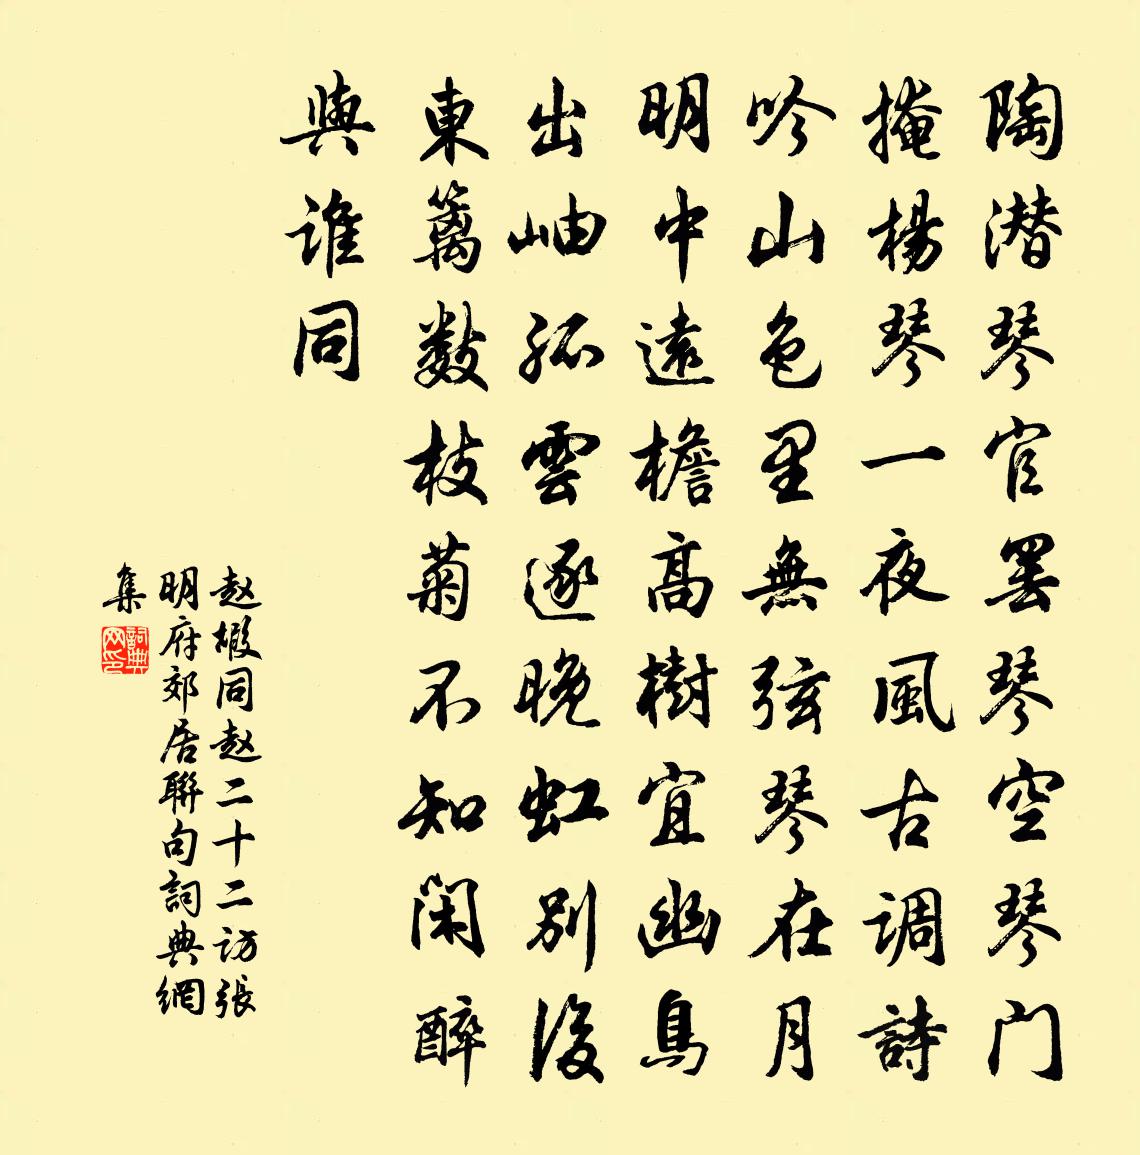 陶潜琴官罢琴空琴门
掩楊琴一夜風古调詩
吟山色里無弦琴在月
明中遠檐高樹宜幽鳥
出岫孤雲逐晚虹别後
東籬数枝菊不知閑醉
與誰同
赵嘏同赵二十二访張
明府郊居聯句詞典網
集
詞典網印